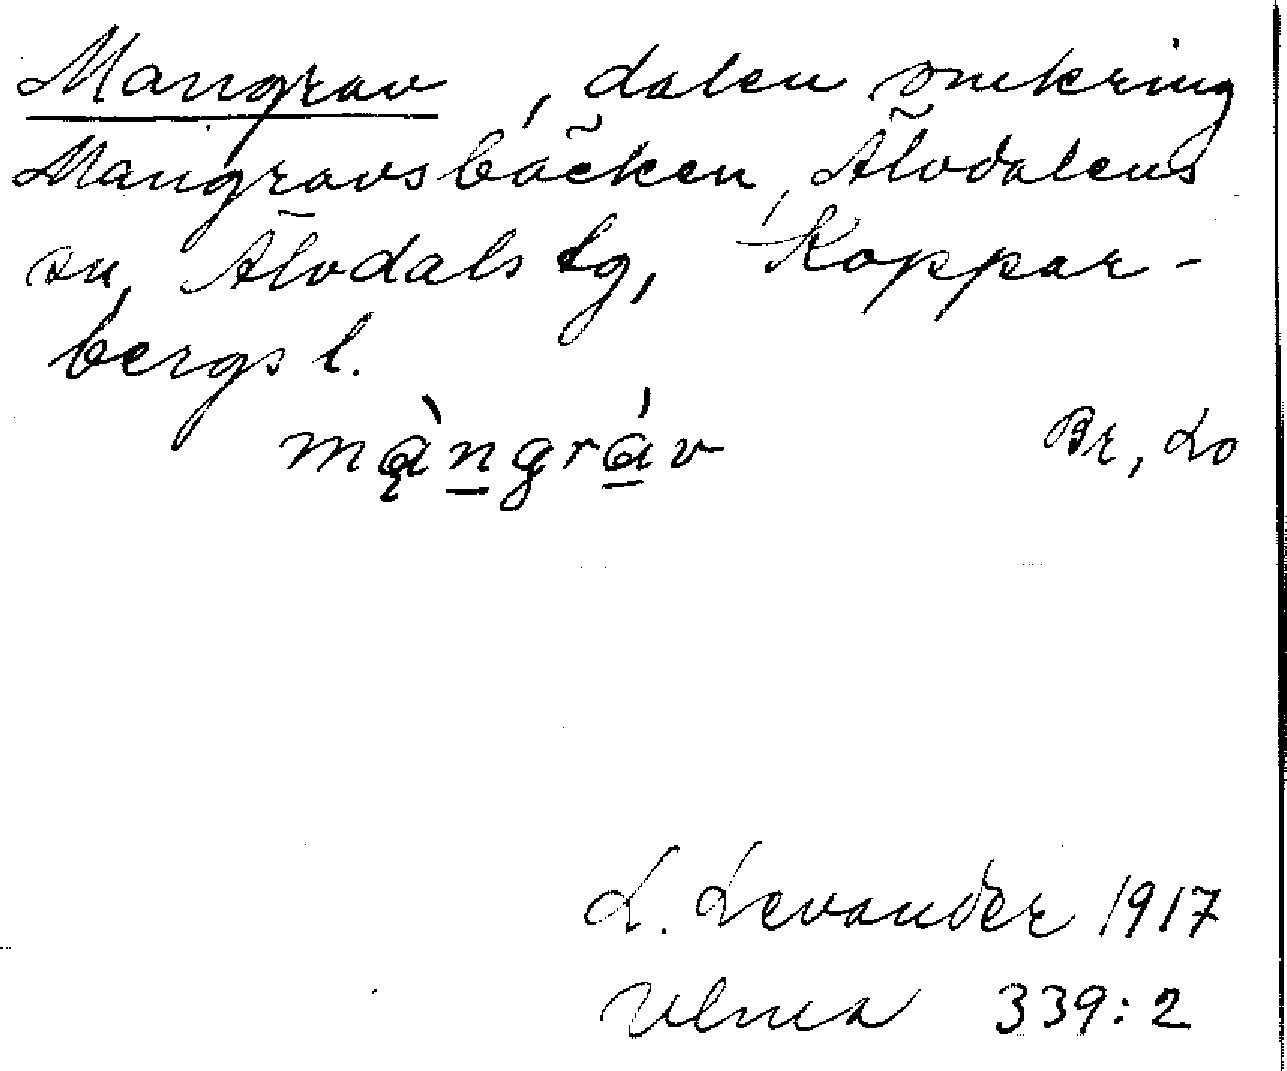 Mangrav, dalen omkring
Mangravsbäcken, Älvdalens
sn, Älvdals tg, Koppar-
bergs l.
mą̀n̲grá̲v Br, Lo
L. Levander 1917
Ulma 339:2